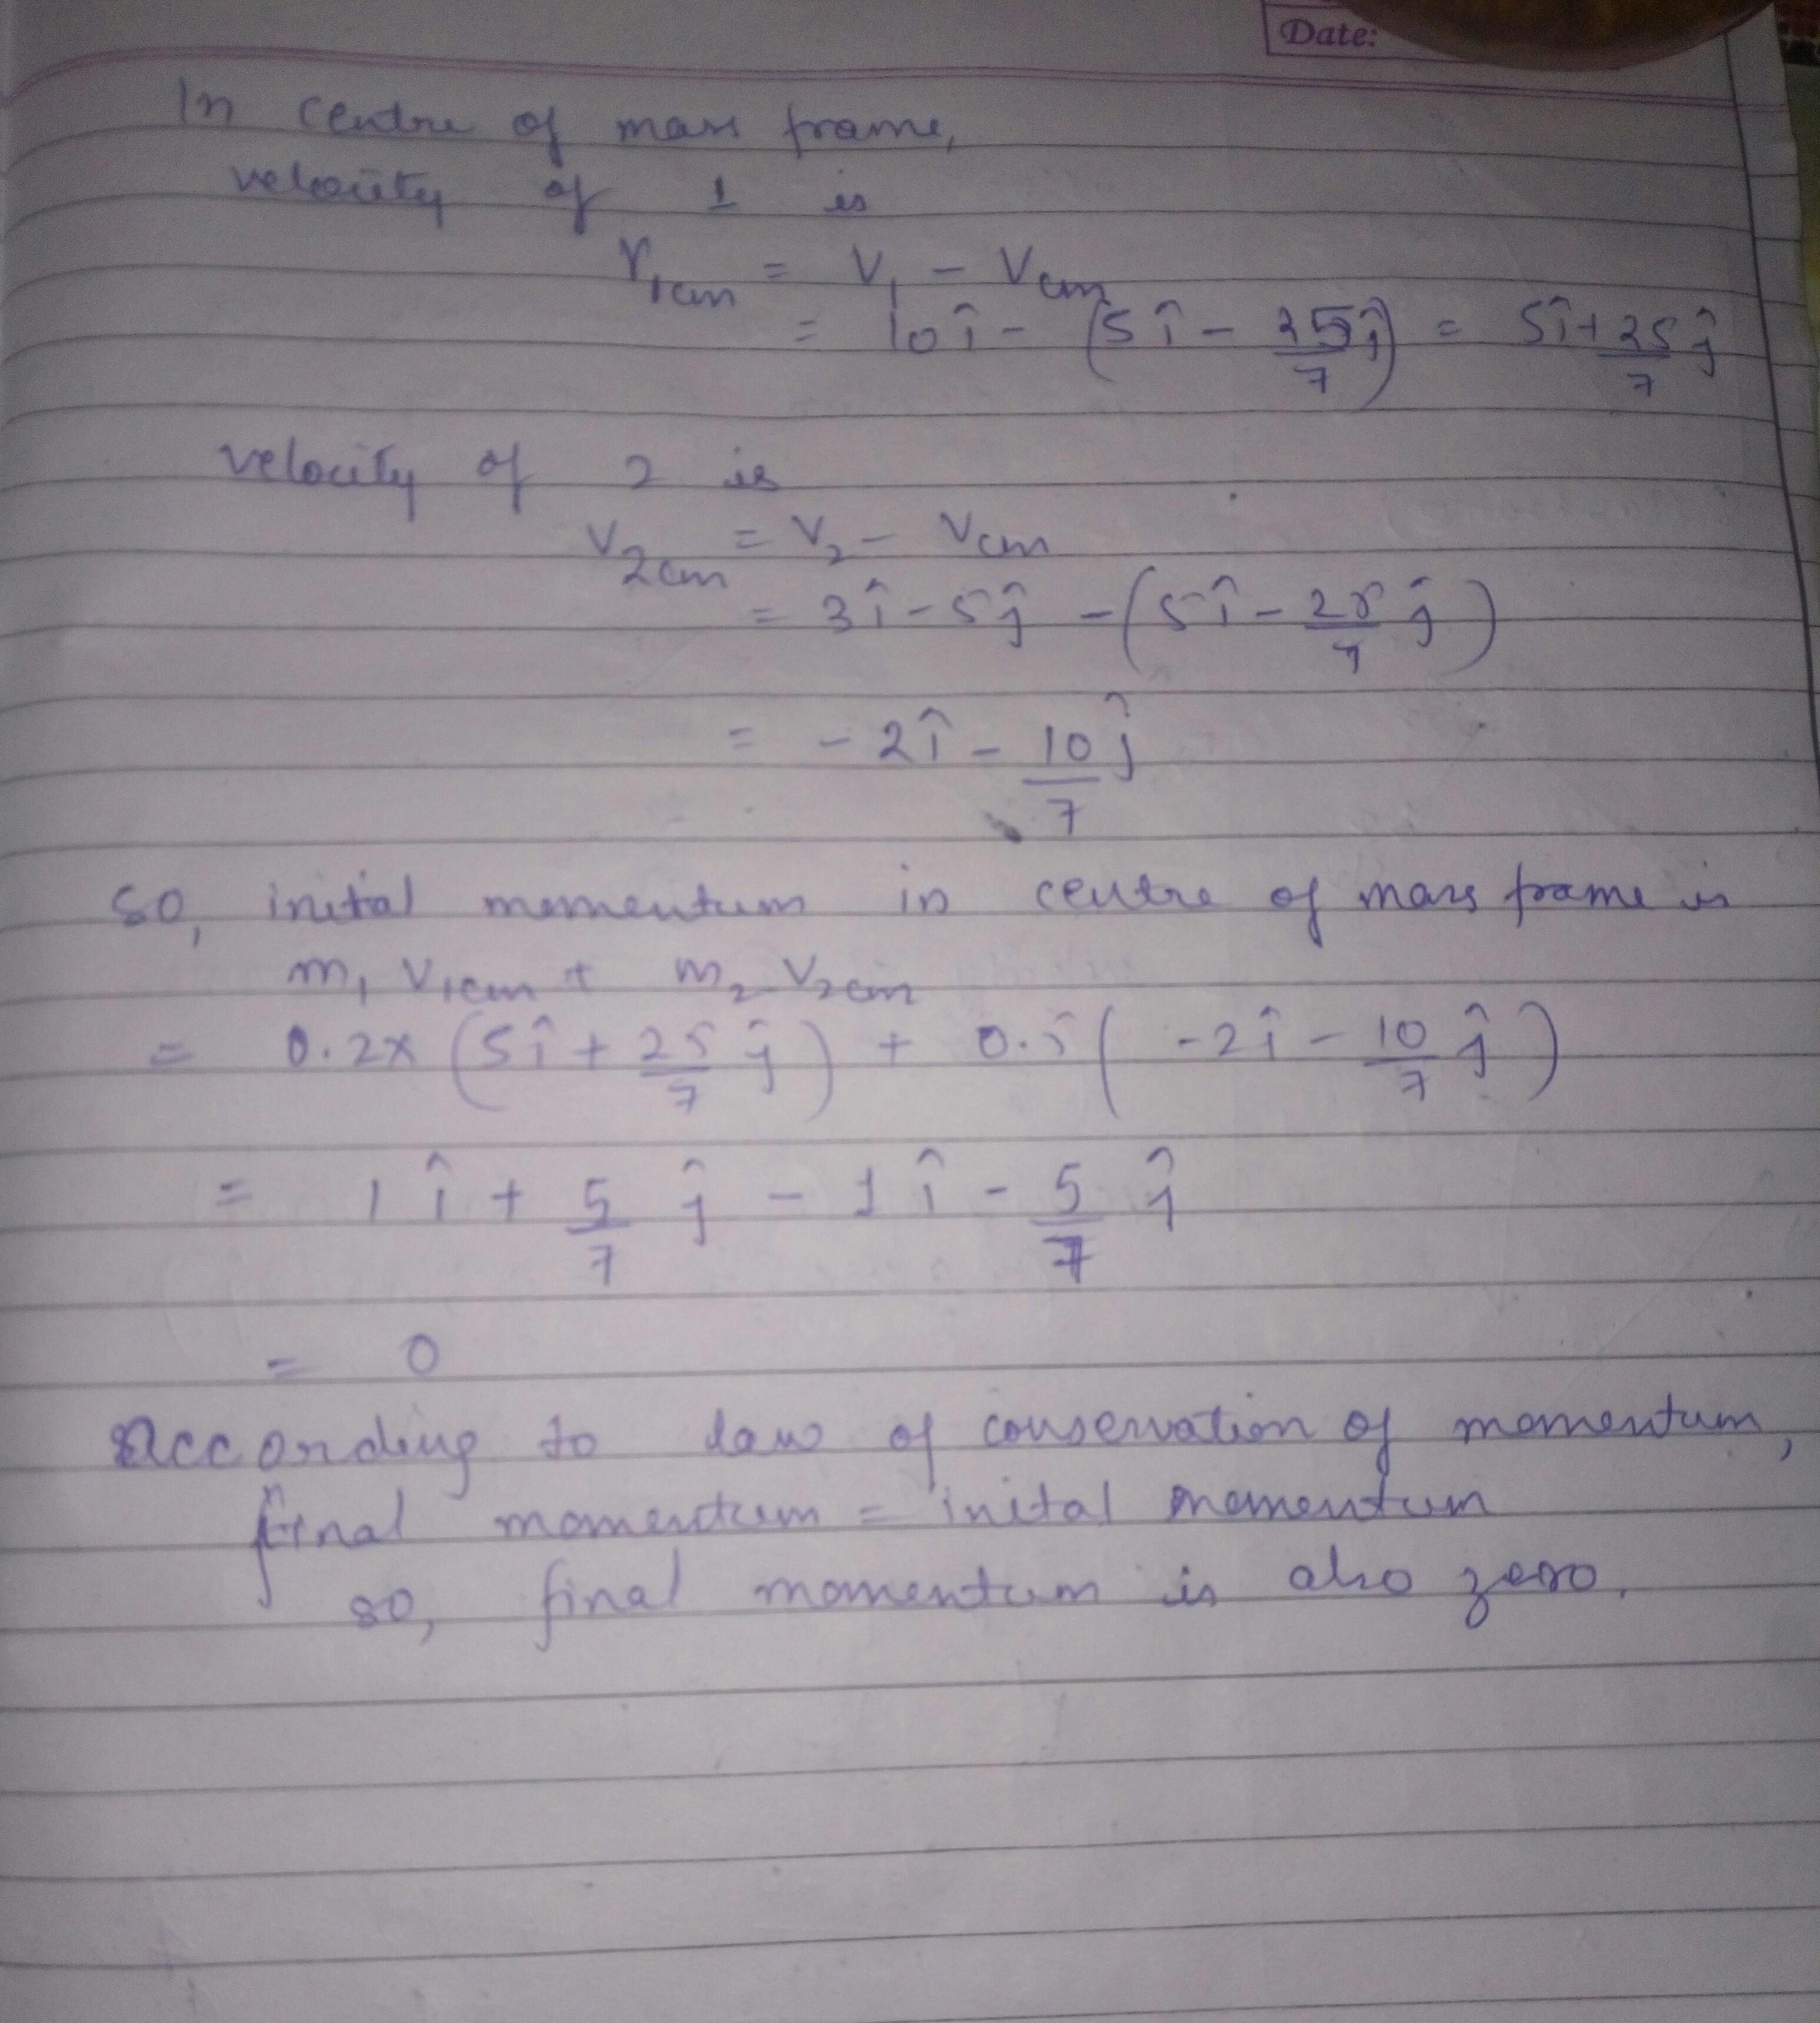 Date:
In centre of mass frame,
velocity of 1 is
V₁cm = V₁ - Vcm
= 10î - (5î - 25/7 ĵ) = 5î + 25/7 ĵ
velocity of 2 is
V₂cm = V₂ - Vcm
= 3î - 5ĵ - (5î - 25/7 ĵ)
= - 2î - 10/7 ĵ
So, inital momentum in centre of mass frame is
m₁ V₁cm + m₂ V₂cm
= 0.2x (5î + 25/7 ĵ) + 0.5( -2î - 10/7 ĵ)
= 1 î + 5/7 ĵ - 1 î - 5/7 ĵ
= 0
According to law of conservation of momentum,
final momentum = inital momentum
so, final momentum is also zero.